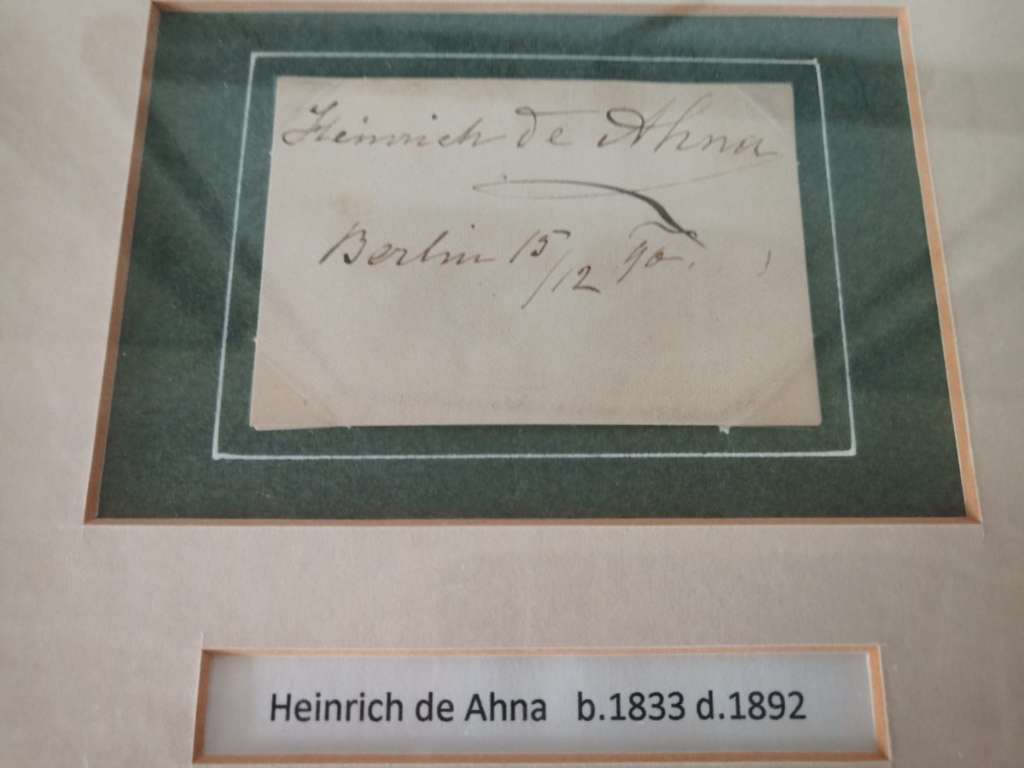 Heinrich de Ahna
Berlin 15/12 90.
Heinrich de Ahna b.1833 d.1892